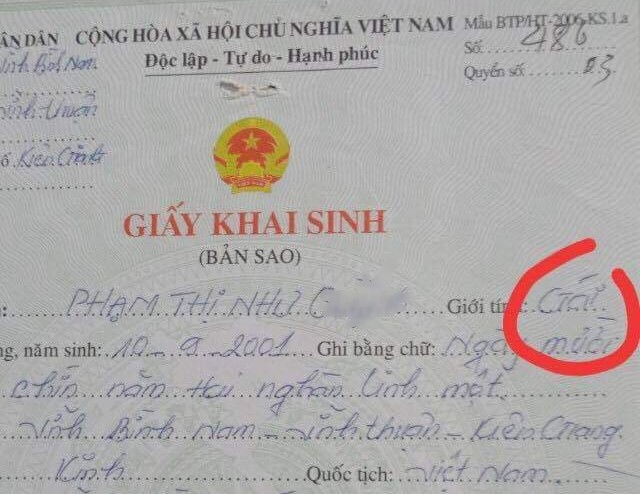 ÂN DÂN CỘNG HÒA XÃ HỘI CHỦ NGHĨA VIỆT NAM Mẫu BTP/HT-2006-KS.1.a
Vĩnh Bình Nam Độc lập - Tự do - Hạnh phúc Số: 486
Vĩnh Thuận Quyển số: 03
ố Kiên Giang
GIẤY KHAI SINH
(BẢN SAO)
PHẠM THỊ NHƯ Giới tín Gái
ng, năm sinh: 10 - 9 - 2001 Ghi bằng chữ: Ngày mười
chín năm Hai nghàn linh một
Vĩnh Bình Nam - Vĩnh Thuận - Kiên Giang
Kinh Quốc tịch: Việt Nam